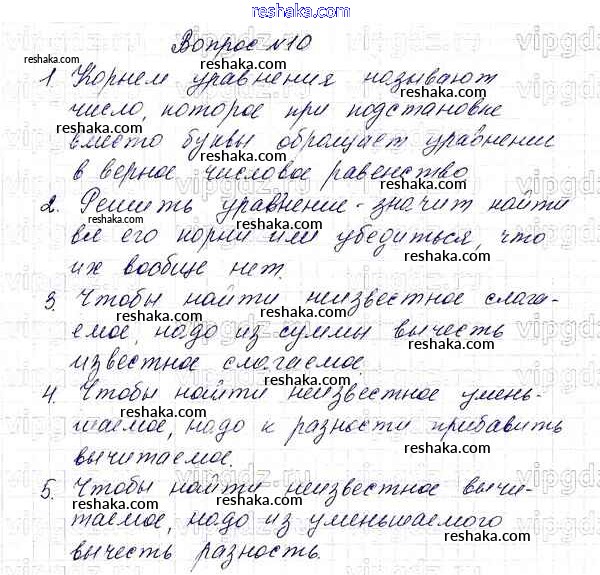 reshaka.com
Вопрос №10
1. Корнем уравнения называют
число, которое при подстановке
вместо буквы обращает уравнении
в верное числовое равенство
2. Решить уравнение - значит найти
все его корни или убедиться, что
их вообще нет.
3. Чтобы найти неизвестное слага-
емое, надо из суммы вычесть
известное слагаемое.
4. Чтобы найти неизвестное умень-
шаемое, надо к разности прибавить
вычитаемое.
5. Чтобы найти неизвестное вычи-
таемое, надо из уменьшаемого
вычесть разность.